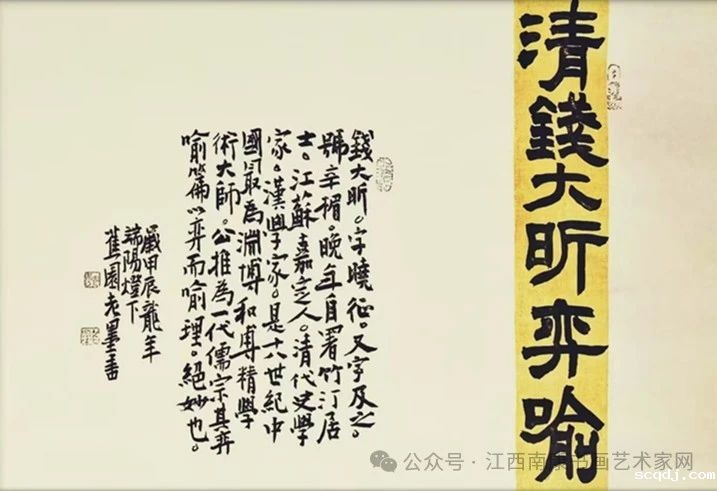 清錢大昕弈喻
錢大昕。字曉征。又字及之。
號辛楣。晚年自署竹汀居
士。江蘇嘉定人。清代史學
家。漢學家。是十八世紀中
國最為淵博和専精學
術大師。公推為一代儒宗其弈
喻篇以弈而喻理。絕妙也。
歲甲辰龍年
端陽燈下
蕉園老墨書
公众号·江西南康书画艺术家网
scqdj.com